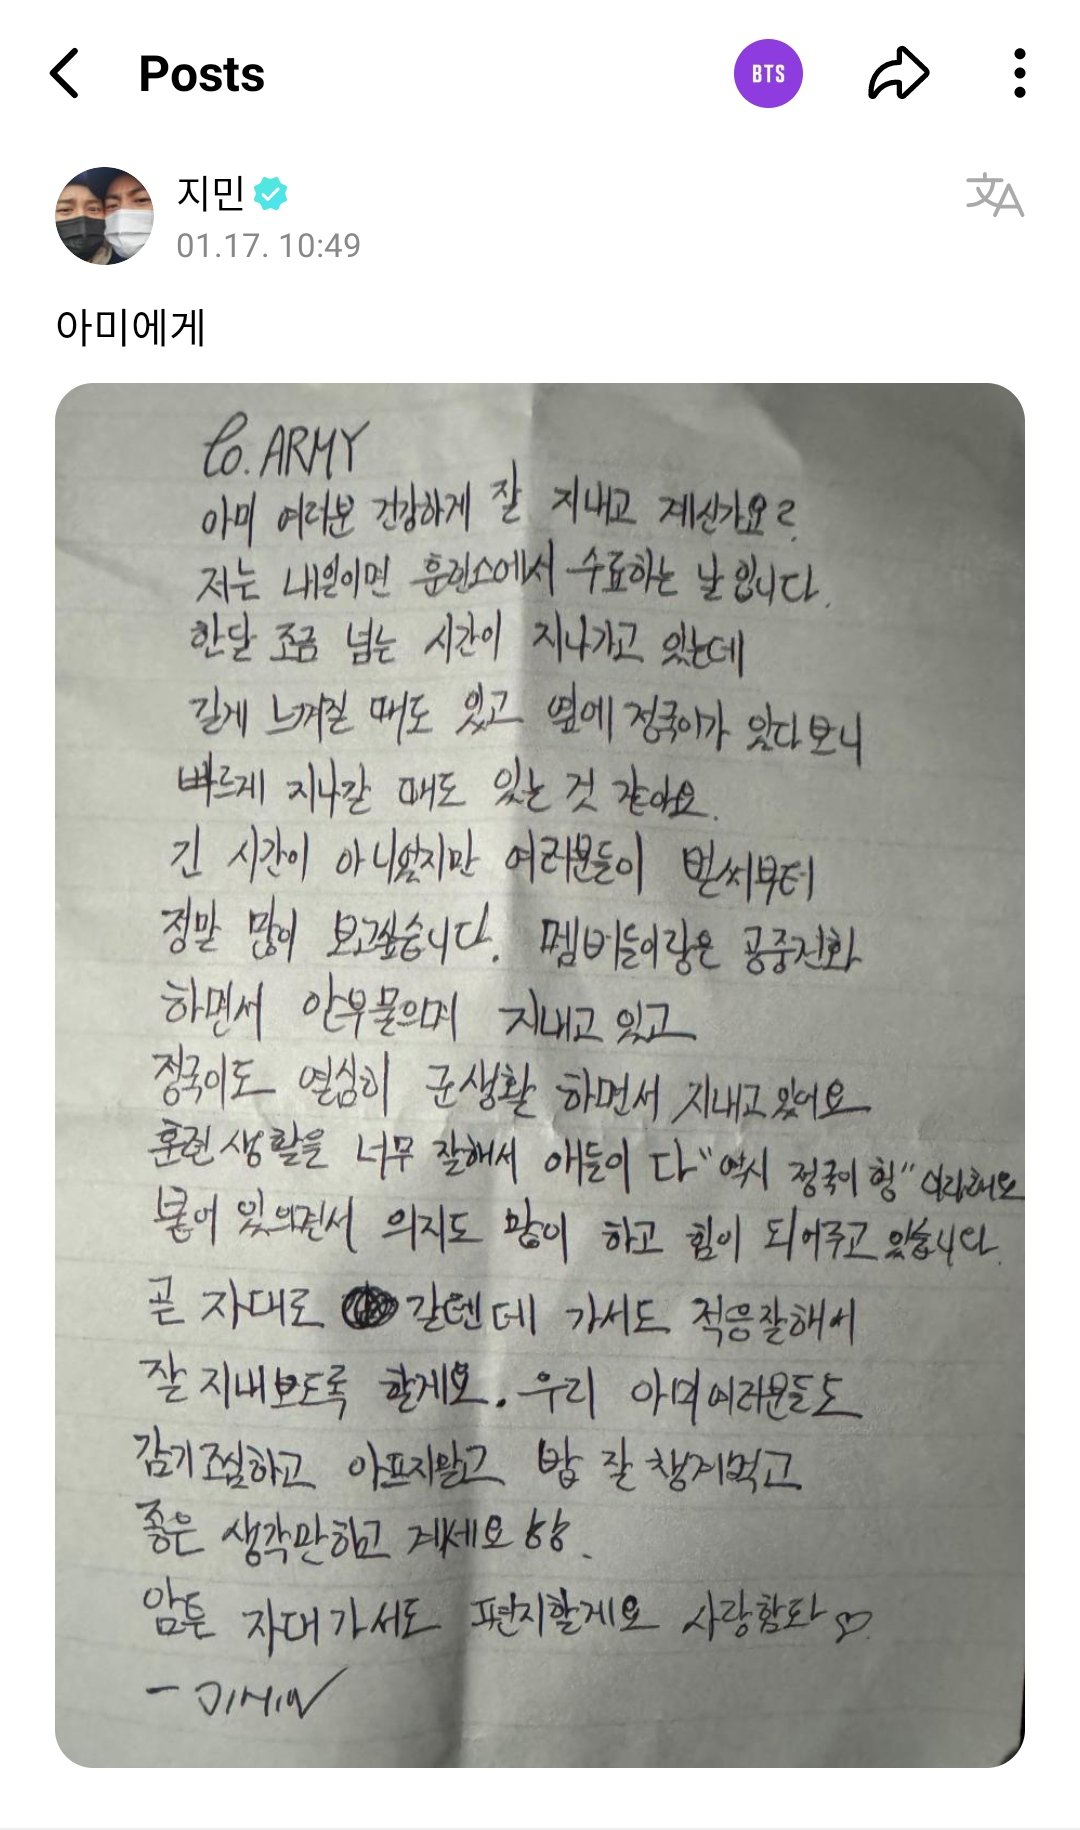 Posts
BTS
지민
01.17. 10:49
아미에게
To. ARMY
아미 여러분 건강하게 잘 지내고 계신가요?
저는 내일이면 훈련소에서 수료하는 날입니다.
한달 조금 넘는 시간이 지나가고 있는데
길게 느껴질 때도 있고 옆에 정국이가 있다보니
빠르게 지나갈 때도 있는 것 같아요.
긴 시간이 아니었지만 여러분들이 벌써부터
정말 많이 보고싶습니다. 멤버들이랑은 공중전화
하면서 안부물으며 지내고 있고
정국이도 열심히 군생활 하면서 지내고 있어요
훈련생활을 너무 잘해서 애들이 다 "역시 정국이 형" 이라해요
붙어 있으면서 의지도 많이 하고 힘이 되어주고 있습니다.
곧 자대로 갈텐데 가서도 적응잘해서
잘 지내보도록 할게요. 우리 아미여러분들도
감기조심하고 아프지말고 밥 잘 챙겨먹고
좋은 생각만하고 계세요
암튼 자대가서도 편지할게요 사랑함돠 ♡
- JIMIN